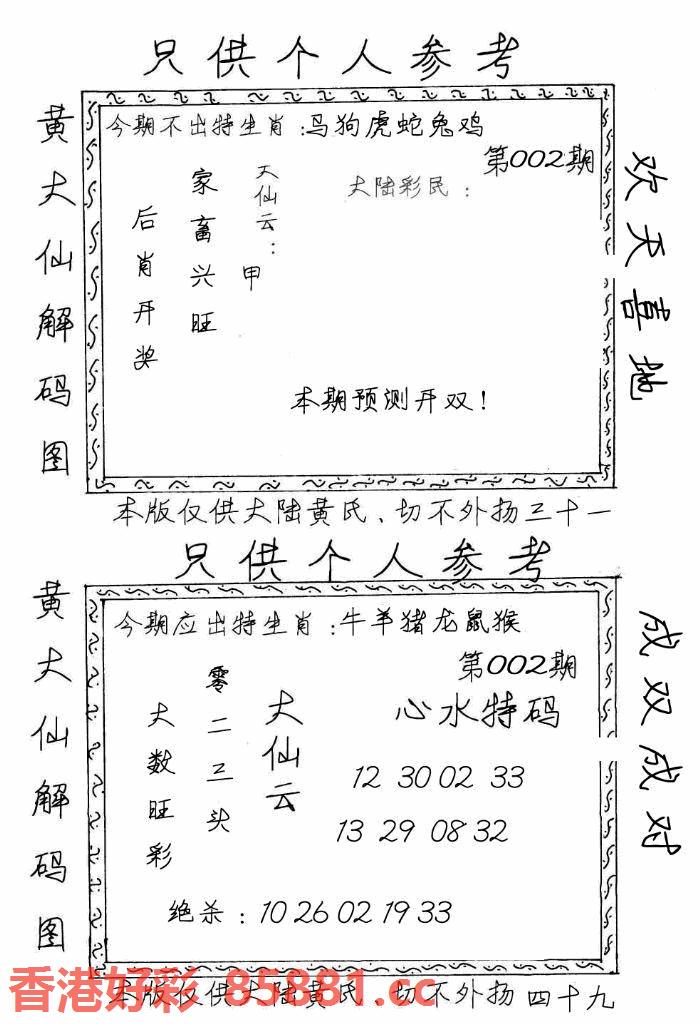 只供个人参考
黄大仙解码图
今期不出特生肖：马狗虎蛇兔鸡
第002期
大仙云：
甲
家畜兴旺
后肖开奖
大陆彩民：
本期预测开双！
欢天喜地
本版仅供大陆黄氏、切不外扬三十一
只供个人参考
黄大仙解码图
今期应出特生肖：牛羊猪龙鼠猴
第002期
大仙云
零二三头
大数旺彩
心水特码
12 30 02 33
13 29 08 32
绝杀：10 26 02 19 33
成双成对
本版仅供大陆黄氏、切不外扬四十九
香港好彩 85881.cc